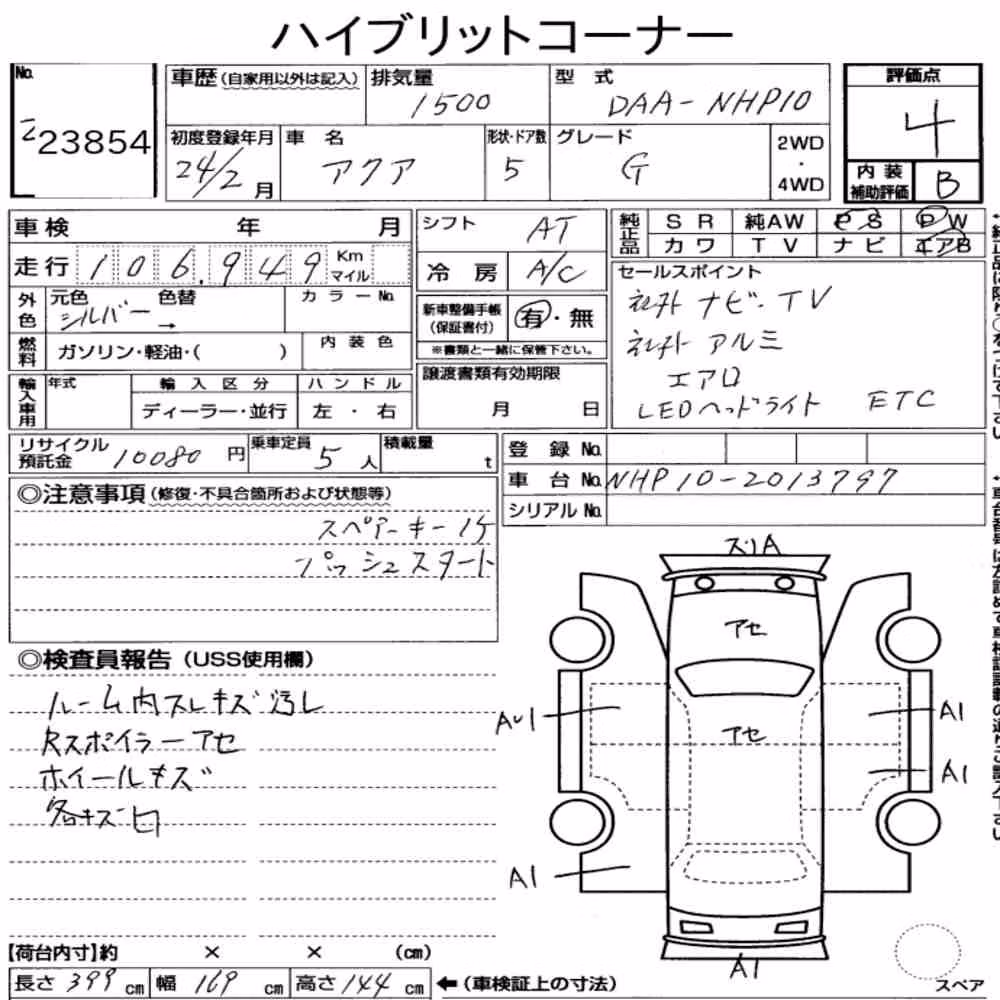 ハイブリットコーナー
No.
ニ23854
車歴(自家用以外は記入)
排気量
1500
型 式
DAA-NHP10
評価点
4
初度登録年月
24/2月
車 名
アクア
形状・ドア数
5
グレード
G
2WD
・
4WD
内装
補助評価
B
車検 年 月
走行 106,949 Km
マイル
シフト AT
冷房 A/C
純正品 SR 純AW PS PW
カワ TV ナビ エアB
外色 元色 色替
シルバー →
カラーNo.
新車整備手帳
(保証書付)
有・無
※書類と一緒に保管下さい。
セールスポイント
社外ナビ・TV
社外アルミ
エアロ
LEDヘッドライト ETC
燃料 ガソリン・軽油・( )
内装色
輸入車用 年式
輸入区分
ディーラー・並行
ハンドル
左・右
譲渡書類有効期限
月 日
リサイクル
預託金 10080円
乗車定員 5人
積載量 t
登録No.
車台No. NHP10-2013797
シリアルNo.
◎注意事項(修復・不具合箇所および状態等)
スペアーキー1ケ
プッシュスタート
◎検査員報告(USS使用欄)
ルーム内スレキズ汚レ
Rスポイラーアセ
ホイールキズ
各キズ凹
スリA
アセ
アセ
AU1
A1
A1
A1
A1
【荷台内寸】約 × × (cm)
長さ 399 cm 幅 169 cm 高さ 144 cm ←(車検証上の寸法)
スペア